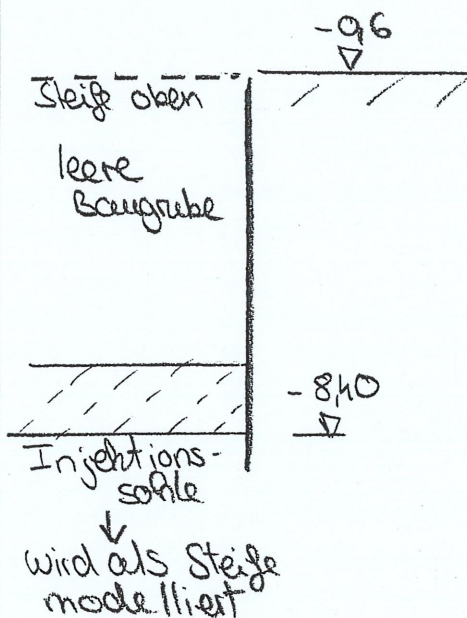 -0,6
Steife oben
leere
Baugrube
-8,40
Injektions-
sohle
wird als Steife
modelliert